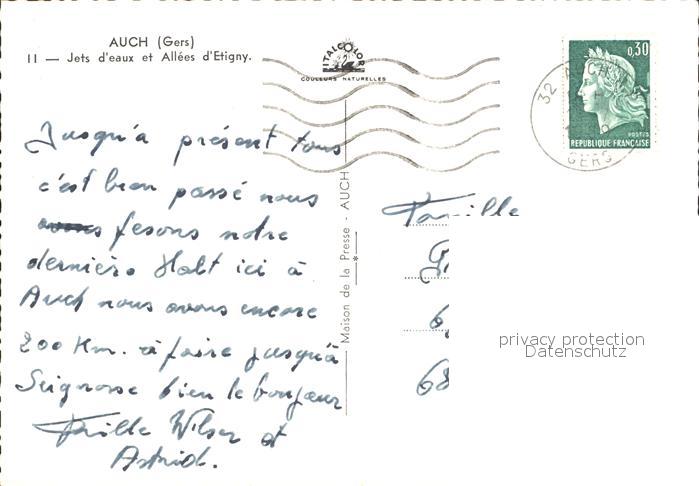 AUCH (Gers)
11 — Jets d'eaux et Allées d'Etigny.
ITALCOLOR
COULEURS NATURELLES
0,30
POSTES
REPUBLIQUE FRANÇAISE
32 AUCH
GERS
Maison de la Presse - AUCH
Jusqu'a présent tous
c'est bien passé nous
fesons notre
dernière Halt ici à
Auch nous avons encore
200 Km. à faire jusqu'à
Seignosse bien le bonjour
Famille Wilser et
Astrid.
Famille
G
6
68
privacy protection
Datenschutz